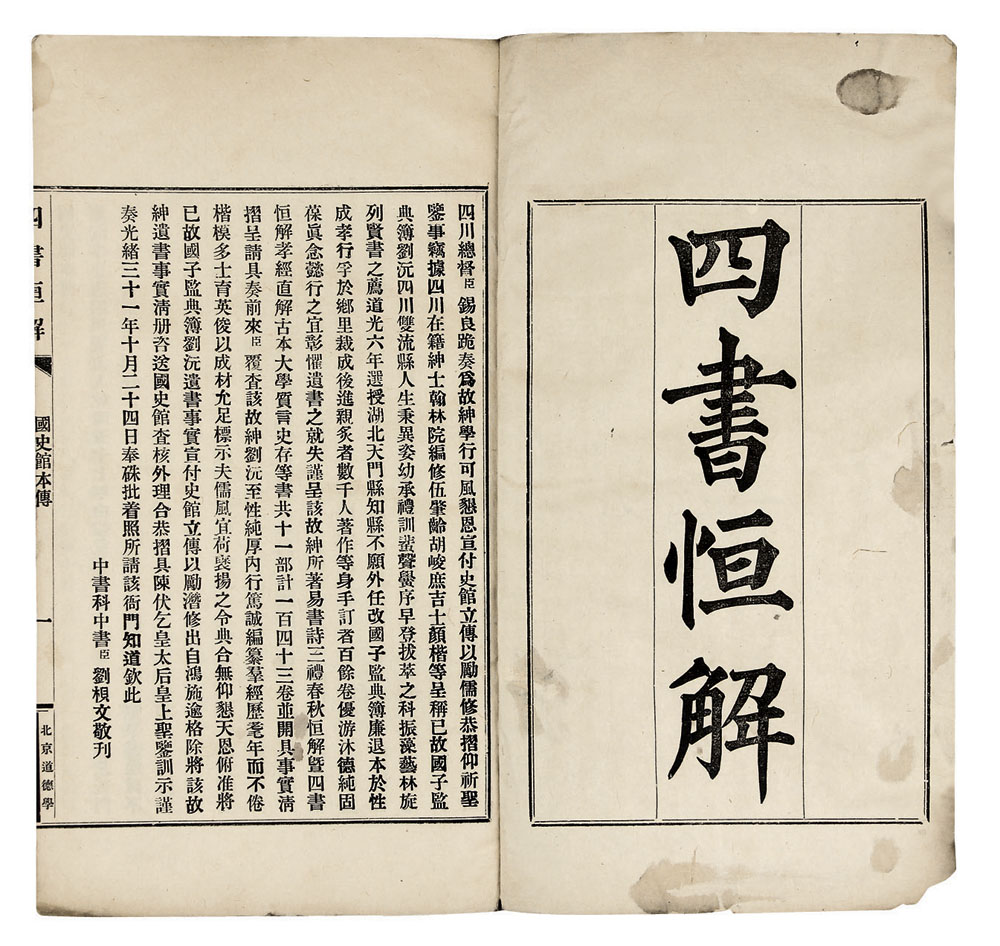 四書恒解
四川總督臣錫良跪奏爲故紳學行可風懇恩宣付史館立傳以勵儒修恭摺仰祈聖
鑒事竊據四川在籍紳士翰林院編修伍肇齡胡峻庶吉士顏楷等呈稱已故國子監
典簿劉沅四川雙流縣人生秉異姿幼承禮訓蜚聲黌序早登拔萃之科振藻藝林旋
列賢書之薦道光六年選授湖北天門縣知縣不願外任改國子監典簿廉退本於性
成孝行孚於鄉里裁成後進親炙者數千人著作等身手訂者百餘卷優游沐德純固
葆眞念懿行之宜彰懼遺書之就失謹呈該故紳所著易書詩三禮春秋恒解暨四書
恒解孝經直解古本大學質言史存等書共十一部計一百四十三卷並開具事實淸
摺呈請具奏前來臣覆查該故紳劉沅至性純厚內行篤誠編纂羣經歷耄年而不倦
楷模多士育英俊以成材允足標示夫儒風宜荷襃揚之令典合無仰懇天恩俯准將
已故國子監典簿劉沅遺書事實宣付史館立傳以勵潛修出自鴻施逾格除將該故
紳遺書事實淸册咨送國史館查核外理合恭摺具陳伏乞皇太后皇上聖鑒訓示謹
奏光緒三十一年十月二十四日奉硃批着照所請該衙門知道欽此
中書科中書臣劉梖文敬刊
四書恒解
國史館本傳
一
北京道德學